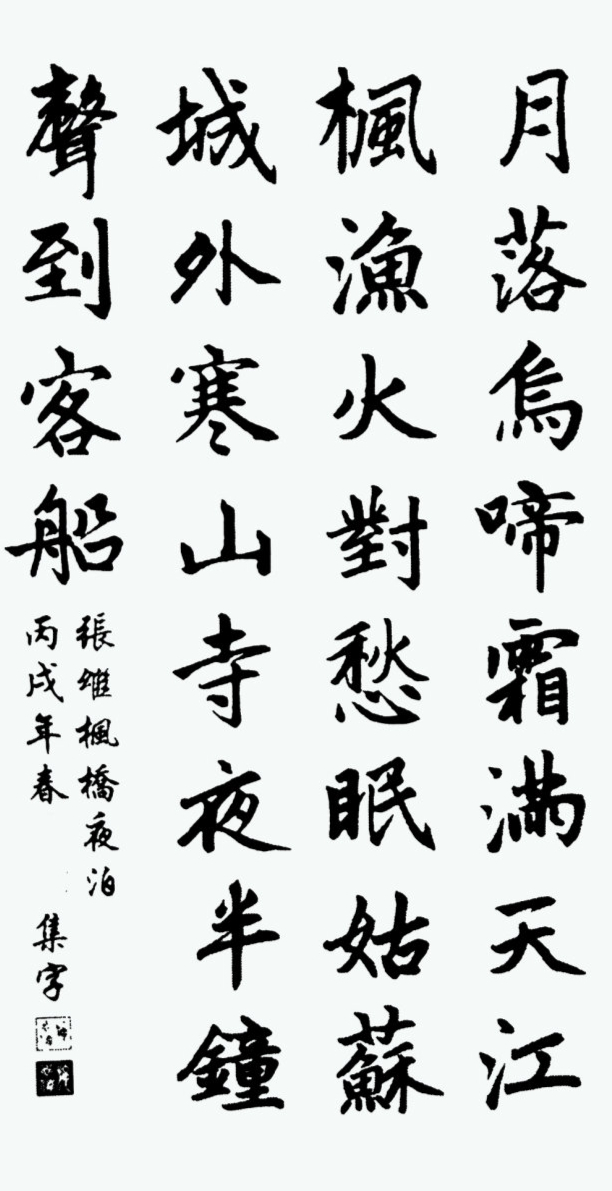 月落烏啼霜滿天江
楓漁火對愁眠姑蘇
城外寒山寺夜半鐘
聲到客船
張維楓橋夜泊
丙戌年春
集字